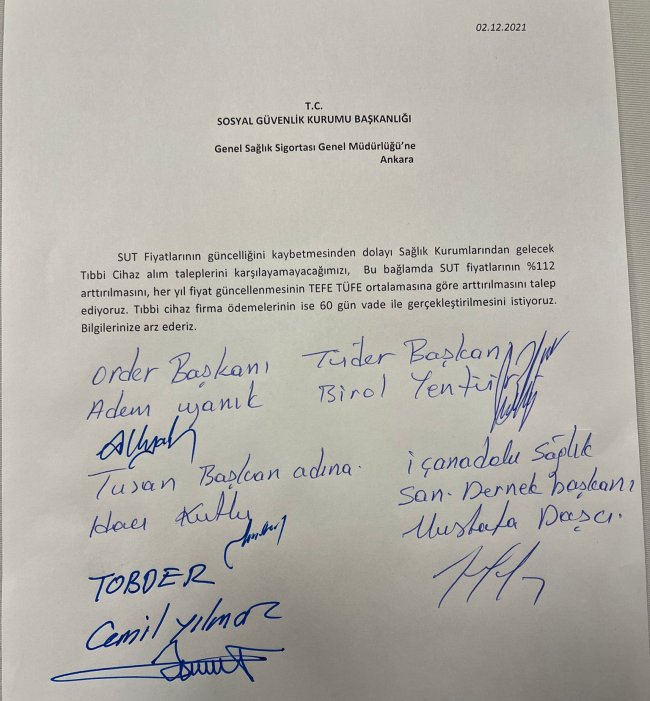 02.12.2021
T.C.
SOSYAL GÜVENLİK KURUMU BAŞKANLIĞI
Genel Sağlık Sigortası Genel Müdürlüğü'ne
Ankara
SUT Fiyatlarının güncelliğini kaybetmesinden dolayı Sağlık Kurumlarından gelecek
Tıbbi Cihaz alım taleplerini karşılayamayacağımızı, Bu bağlamda SUT fiyatlarının %112
arttırılmasını, her yıl fiyat güncellenmesinin TEFE TÜFE ortalamasına göre arttırılmasını talep
ediyoruz. Tıbbi cihaz firma ödemelerinin ise 60 gün vade ile gerçekleştirilmesini istiyoruz.
Bilgilerinize arz ederiz.
Order Başkanı
Adem uyanık
Tüder Başkan
Birol
Tusan Başkan adına.
Hacı Kutlu
içanadolu Sağlık
San. Dernek başkanı
Mustafa Daşcı.
TOBDER
Cemil Yılmaz